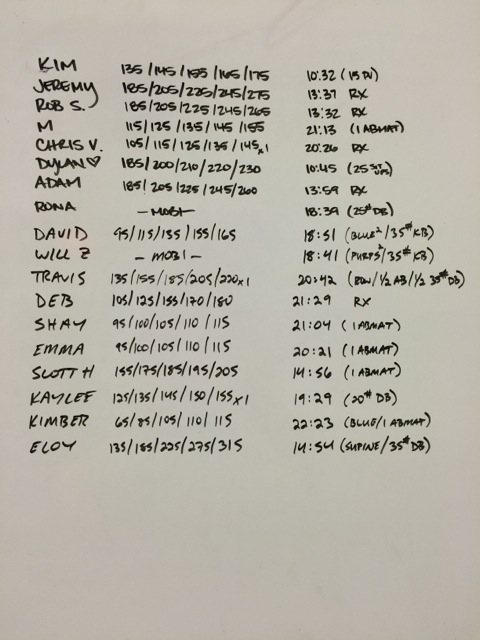 KIM 135/145/155/165/175 10:32 (15 PV)
JEREMY 185/205/225/245/275 13:37 RX
ROB S. 185/205/225/245/265 13:32 RX
M 115/125/135/145/155 21:13 (1 ABMAT)
CHRIS V. 105/115/125/135/145x1 20:26 RX
DYLAN♡ 185/200/210/220/230 10:45 (25
ADAM 185/205/225/245/260 13:59 RX
RONA -MOBI- 18:39 (25# DB)
DAVID 95/115/135/155/165 18:51 (BLUE²/35# KB)
WILL Z -MOBI- 18:41 (PURPS²/35# KB)
TRAVIS 135/155/185/205/220x1 20:42 (ROW/½ AB/½ 35# DB)
DEB 105/125/155/170/180 21:29 RX
SHAY 95/100/105/110/115 21:04 (1 ABMAT)
EMMA 95/100/105/110/115 20:21 (1 ABMAT)
SCOTT H 155/175/185/195/205 14:56 (1 ABMAT)
KAYLEE 125/135/145/150/155x1 19:29 (20# DB)
KIMBER 65/85/105/110/115 22:23 (BLUE/1 ABMAT)
ELOY 135/185/225/275/315 14:54 (SUPINE/35# DB)